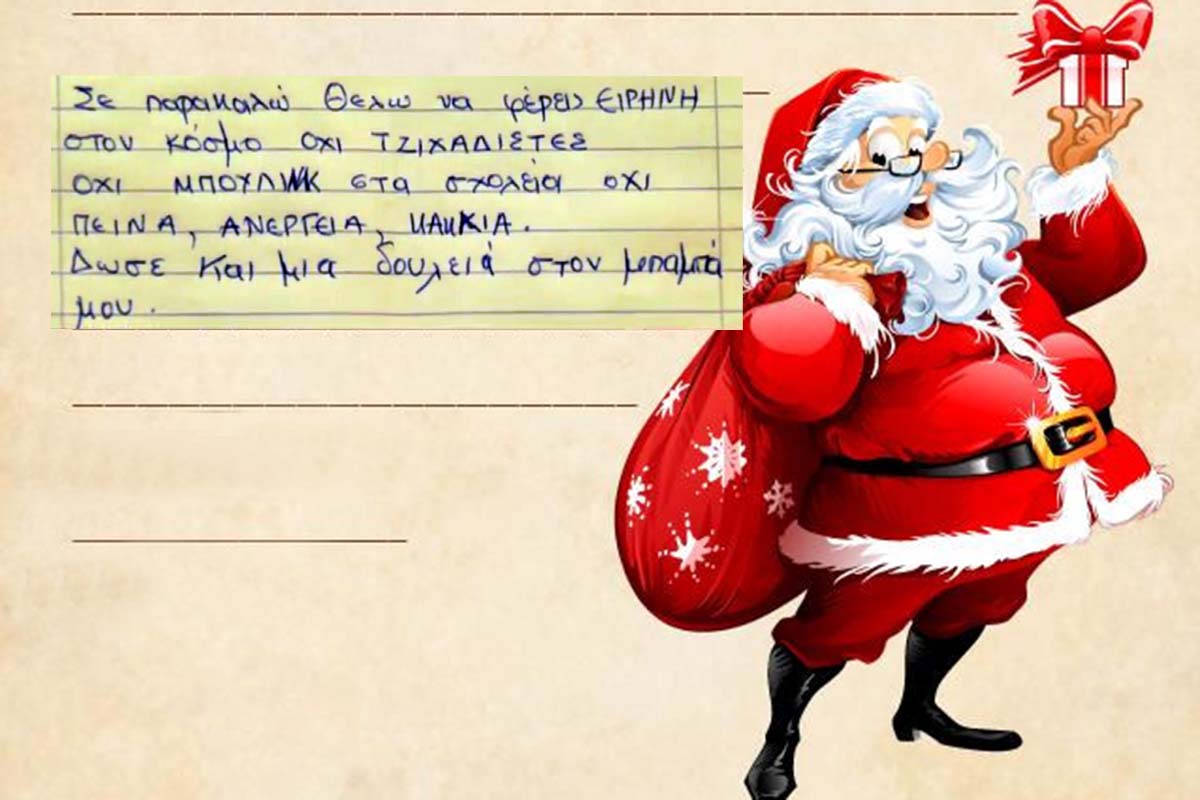 Σε παρακαλώ Θελω να φέρεις ΕΙΡΗΝΗ
στον κόσμο οχι ΤΖΙΧΑΔΙΣΤΕΣ
οχι ΜΠΟΥΛΙΝΚ στα σχολεία οχι
ΠΕΙΝΑ, ΑΝΕΡΓΕΙΑ, ΚΑΚΚΙΑ.
Δωσε και μια δουλειά στον μπαμπά
μου.